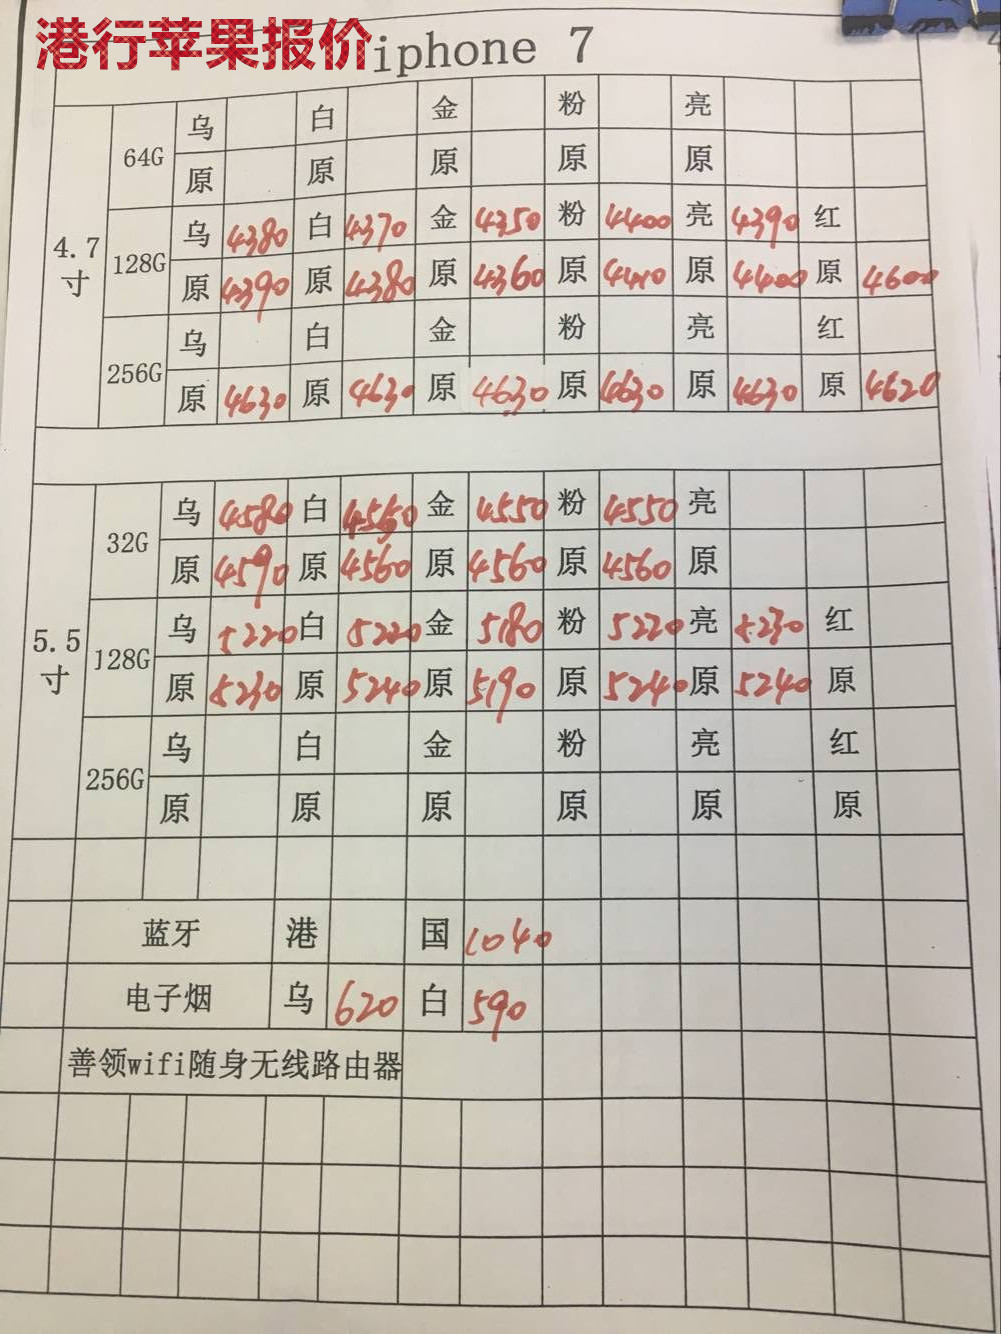 港行苹果报价
iphone 7
4.7寸
64G
乌 白 金 粉 亮
原 原 原 原 原
128G
乌 4380 白 4370 金 4350 粉 4400 亮 4390 红
原 4390 原 4380 原 4360 原 4410 原 4400 原 4600
256G
乌 白 金 粉 亮 红
原 4630 原 4630 原 4630 原 4630 原 4630 原 4620
5.5寸
32G
乌 4580 白 金 4550 粉 4550 亮
原 4590 原 4560 原 4560 原 4560 原
128G
乌 5220 白 5220 金 5180 粉 5220 亮 5230 红
原 5230 原 5240 原 5190 原 5240 原 5240 原
256G
乌 白 金 粉 亮 红
原 原 原 原 原 原
蓝牙 港 国 1040
电子烟 乌 620 白 590
善领wifi随身无线路由器